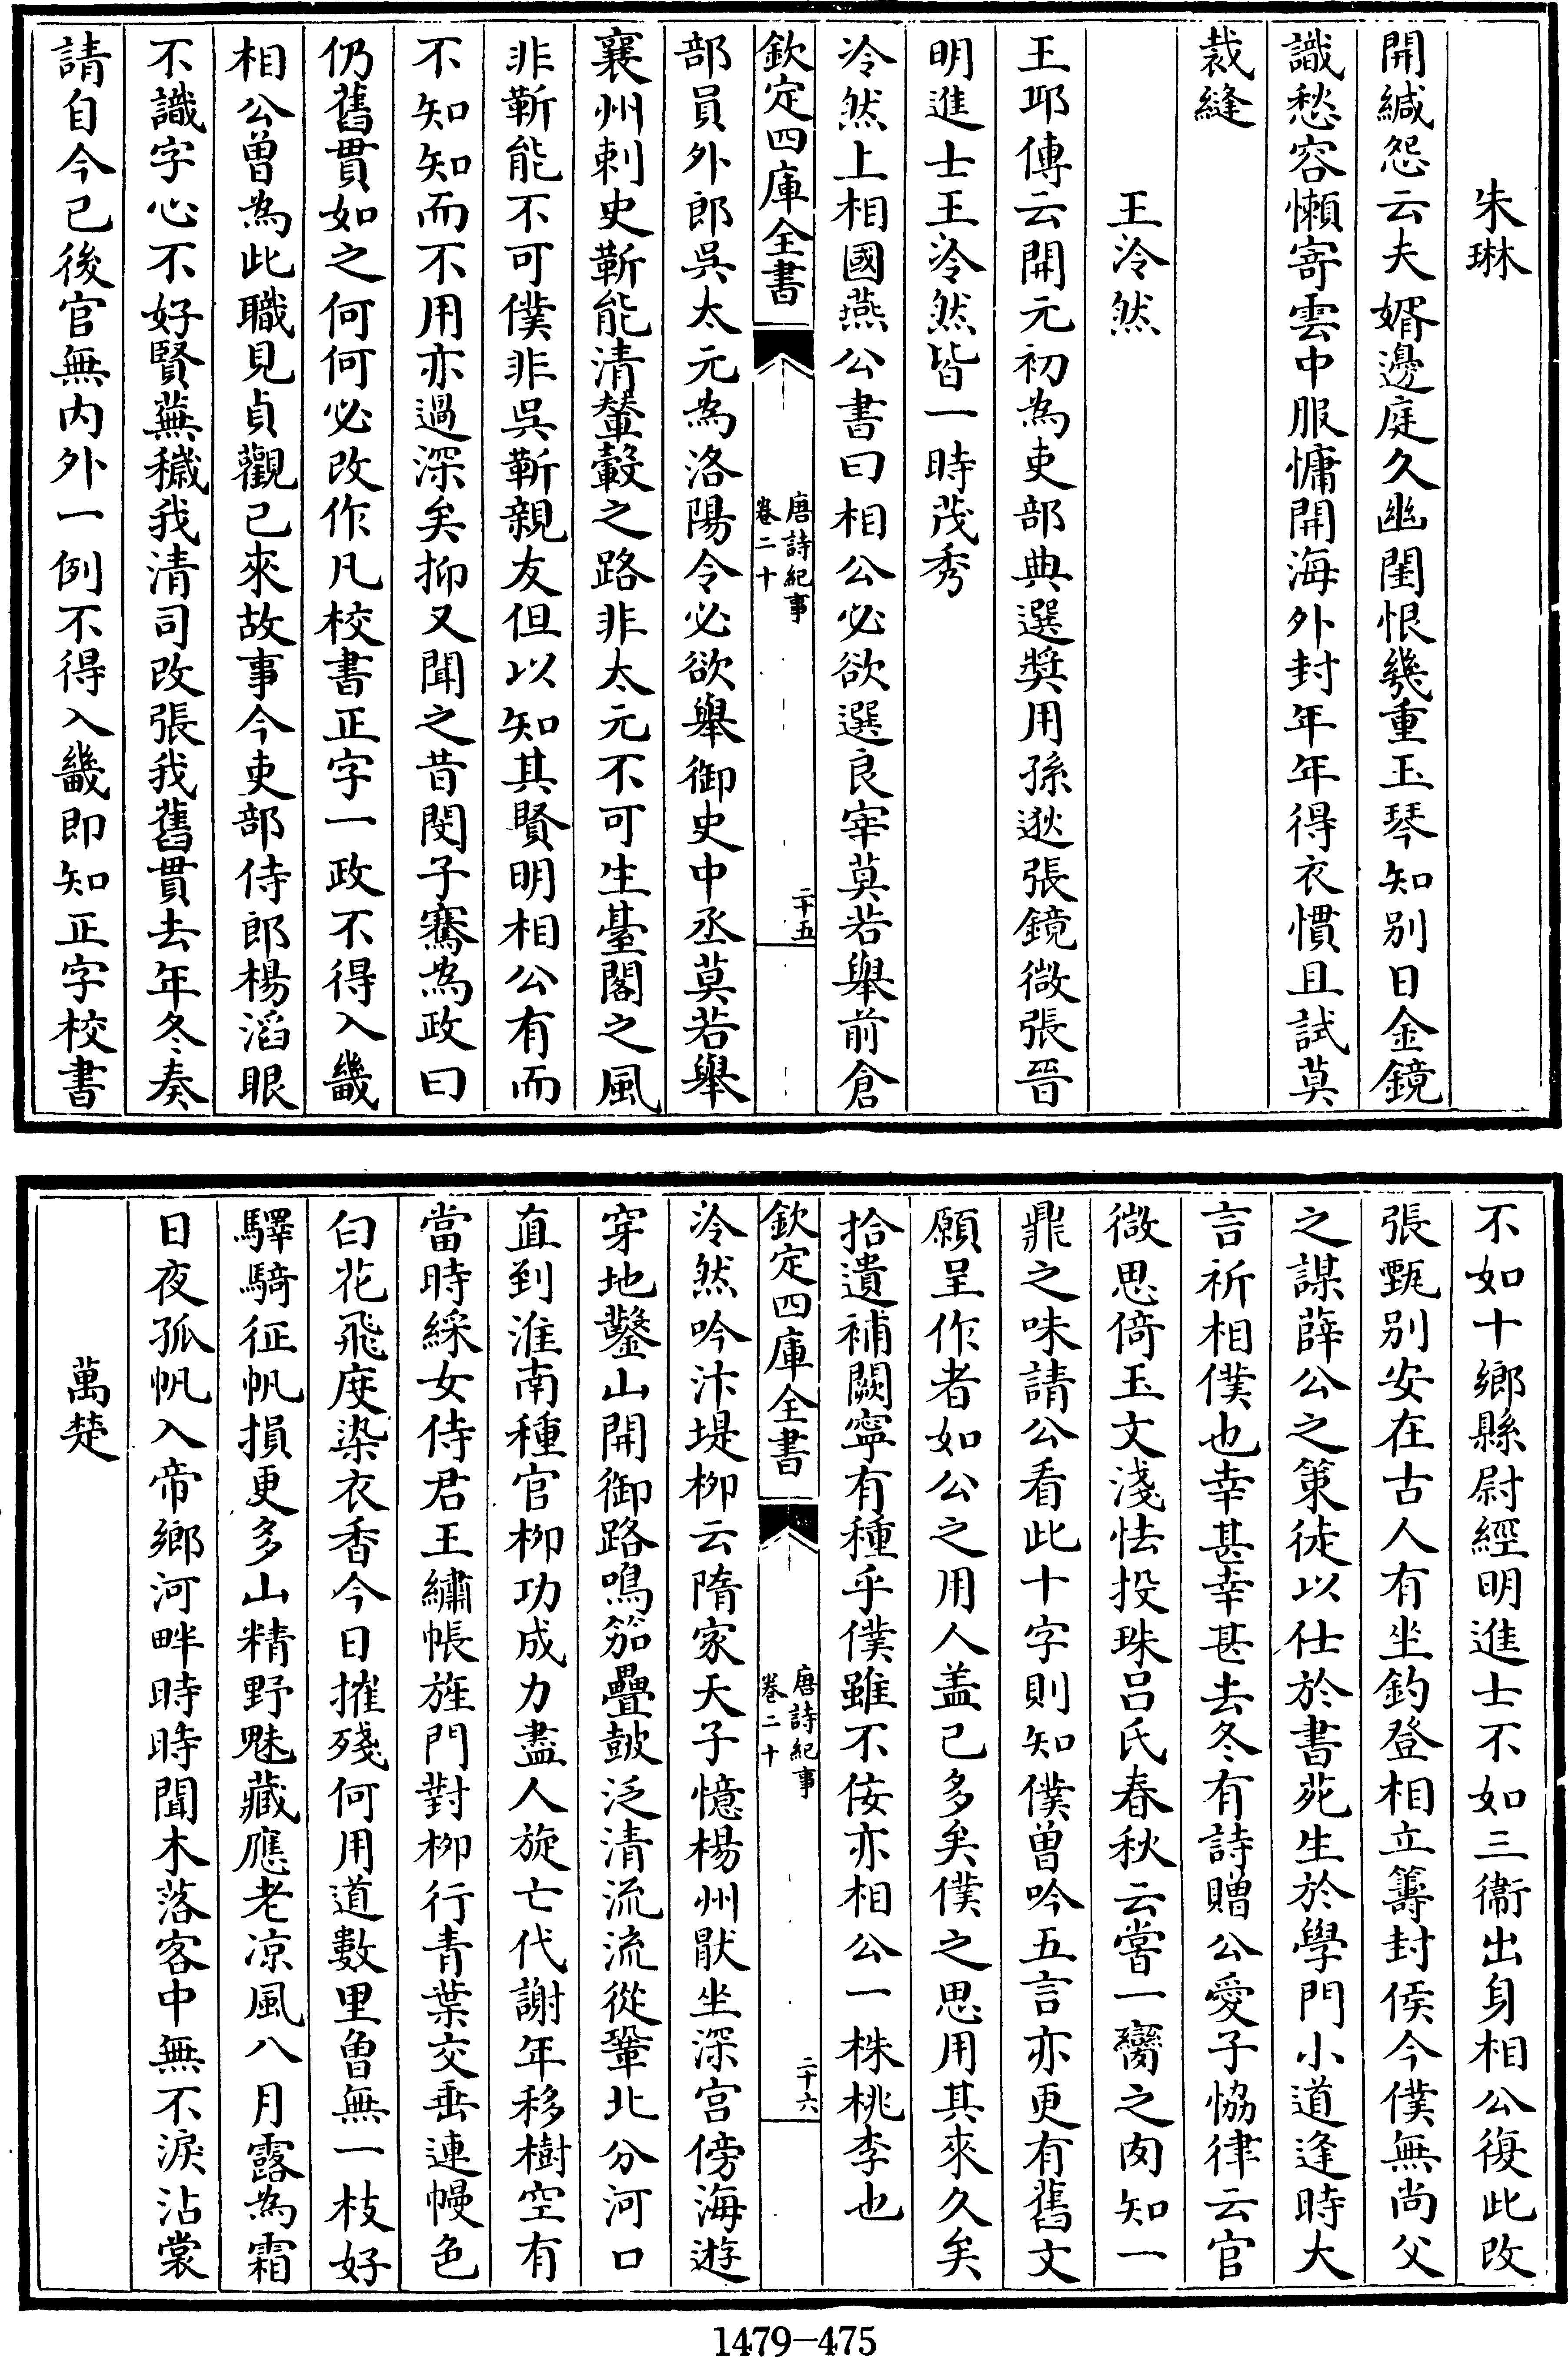 朱琳
開緘怨云夫婿邊庭久幽閨恨幾重玉琴知别日金鏡
識愁容懶寄雲中服慵開海外封年年得衣慣且試莫
裁縫
王泠然
王邛傳云開元初為吏部典選奬用孫逖張鏡微張晉
明進士王泠然皆一時茂秀
泠然上相國燕公書曰相公必欲選良宰莫若舉前倉
欽定四庫全書
唐詩紀事
卷二十
二十五
部員外郎吳太元為洛陽令必欲舉御史中丞莫若舉
襄州刺史靳能清輦轂之路非太元不可生臺閣之風
非靳能不可僕非吳靳親友但以知其賢明相公有而
不知知而不用亦過深矣抑又聞之昔閔子騫為政曰
仍舊貫如之何何必改作凡校書正字一政不得入畿
相公曾為此職見貞觀已來故事今吏部侍郎楊滔眼
不識字心不好賢蕪穢我清司改張我舊貫去年冬奏
請自今已後官無内外一例不得入畿即知正字校書
不如十鄉縣尉經明進士不如三衞出身相公復此改
張甄别安在古人有坐釣登相立籌封侯今僕無尚父
之謀薛公之策徒以仕於書苑生於學門小道逢時大
言祈相僕也幸甚幸甚去冬有詩贈公愛子恊律云官
微思倚玉文淺怯投珠呂氏春秋云嘗一臠之肉知一
鼎之味請公看此十字則知僕曾吟五言亦更有舊文
願呈作者如公之用人盖已多矣僕之思用其來久矣
拾遺補闕寧有種乎僕雖不佞亦相公一株桃李也
欽定四庫全書
唐詩紀事
卷二十
二十六
泠然吟汴堤柳云隋家天子憶楊州厭坐深宫傍海遊
穿地鑿山開御路鳴笳疊鼓泛清流流從鞏北分河口
直到淮南種官柳功成力盡人旋亡代謝年移樹空有
當時綵女侍君王繡帳旌門對柳行青葉交垂連幔色
白花飛度染衣香今日摧殘何用道數里曾無一枝好
驛騎征帆損更多山精野魅藏應老凉風八月露為霜
日夜孤帆入帝鄉河畔時時聞木落客中無不淚沾裳
萬楚
1479-475